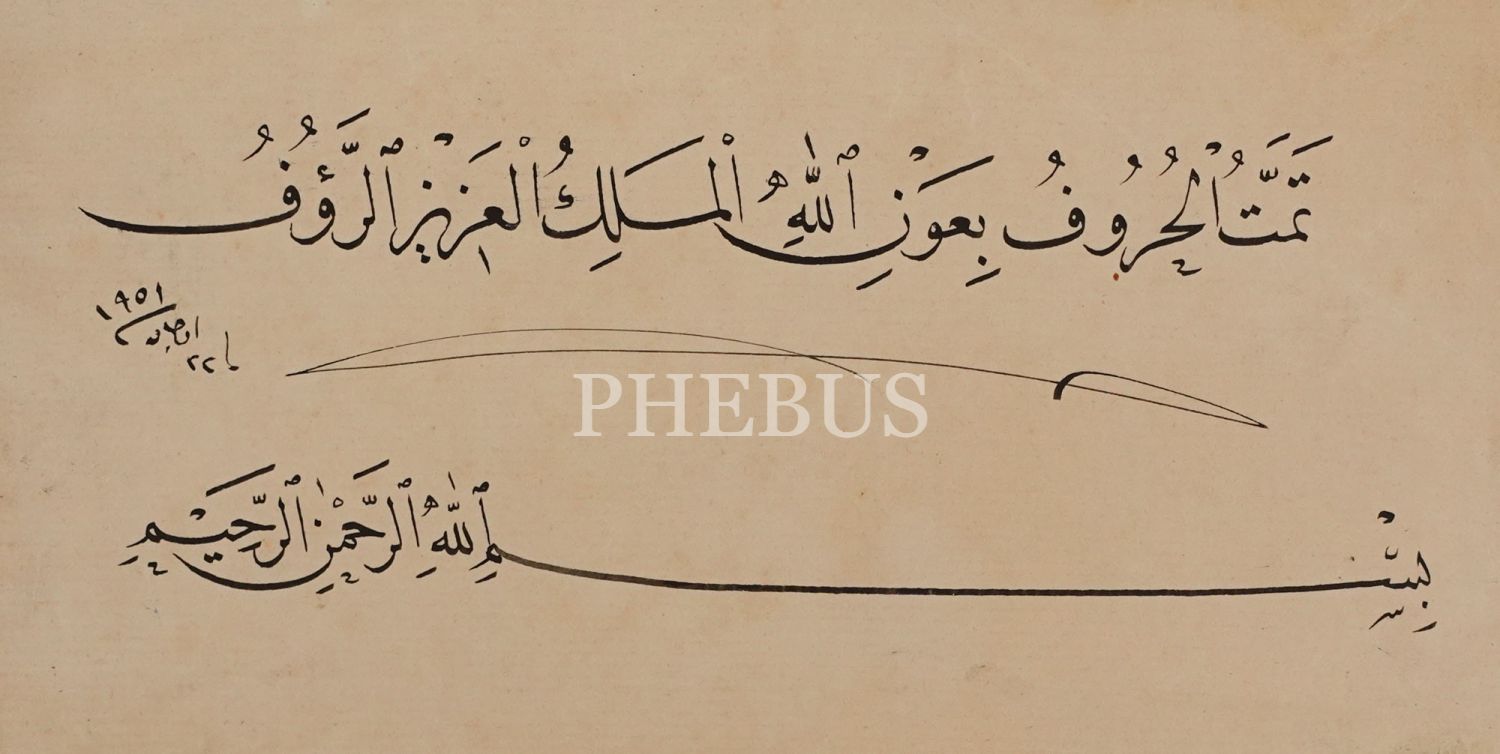 تَمَّتُ الْحُرُوفُ بِعَوْنِ اللّٰهِ الْمَلِكُ الْعَزِيْزِ الرَّؤُفُ
١٩٥١
٢٢
PHEBUS
بِسْمِ اللّٰهِ الرَّحْمٰنِ الرَّحِيْمِ